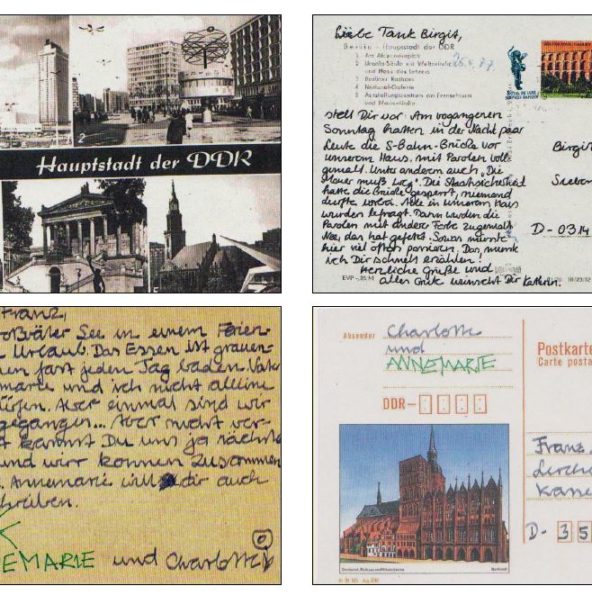 2
Hauptstadt der DDR
Liebe Tante Birgit,
Berlin – Hauptstadt der DDR
1 Am Alexanderplatz
2 Urania-Säule mit Weltzeituhr
und Haus des Lehrers
3 Berliner Rathaus
4 National-Galerie
5 Ausstellungszentrum am Fernsehturm
und Marienkirche
stell Dir vor. Am vogangenen
Sonntag hatten in der Nacht paar
Leute die S-Bahn-Brücke vor
unserem Haus, mit Parolen voll
gemalt. Unter anderem auch „Die
Mauer muß weg". Die Staatssicherheit
hatte die Brücke gesperrt, niemand
durfte vorbei. Alle in unserem Haus
wurden befragt. Dann wurden die
Parolen mit andrer Farbe zugemalt.
Nee, das hat gefetzt. Sowas müsste
hier viel öfter passieren. Das musst
ich Dir schnell erzählen!
Herzliche Grüße und
alles Gute wünscht Dir Kathrin.
Birgit
D - 0314
Franz,
oßväter See in einem Ferien
Urlaub. Das Essen ist grauen
en fast jeden Tag baden. Vater
marie und ich nicht alleine
ürfen. Aber einmal sind wir
gegangen... Aber nicht ver-
t kannst Du uns ja nächste
und wir können zusammen
Annemarie will dir auch
chreiben.
EMARIE und Charlotte
Absender
Charlotte
und
ANNEMARIE
DDR–
Postkarte
Carte posta
Franz
Lerche
Kasse
D - 35